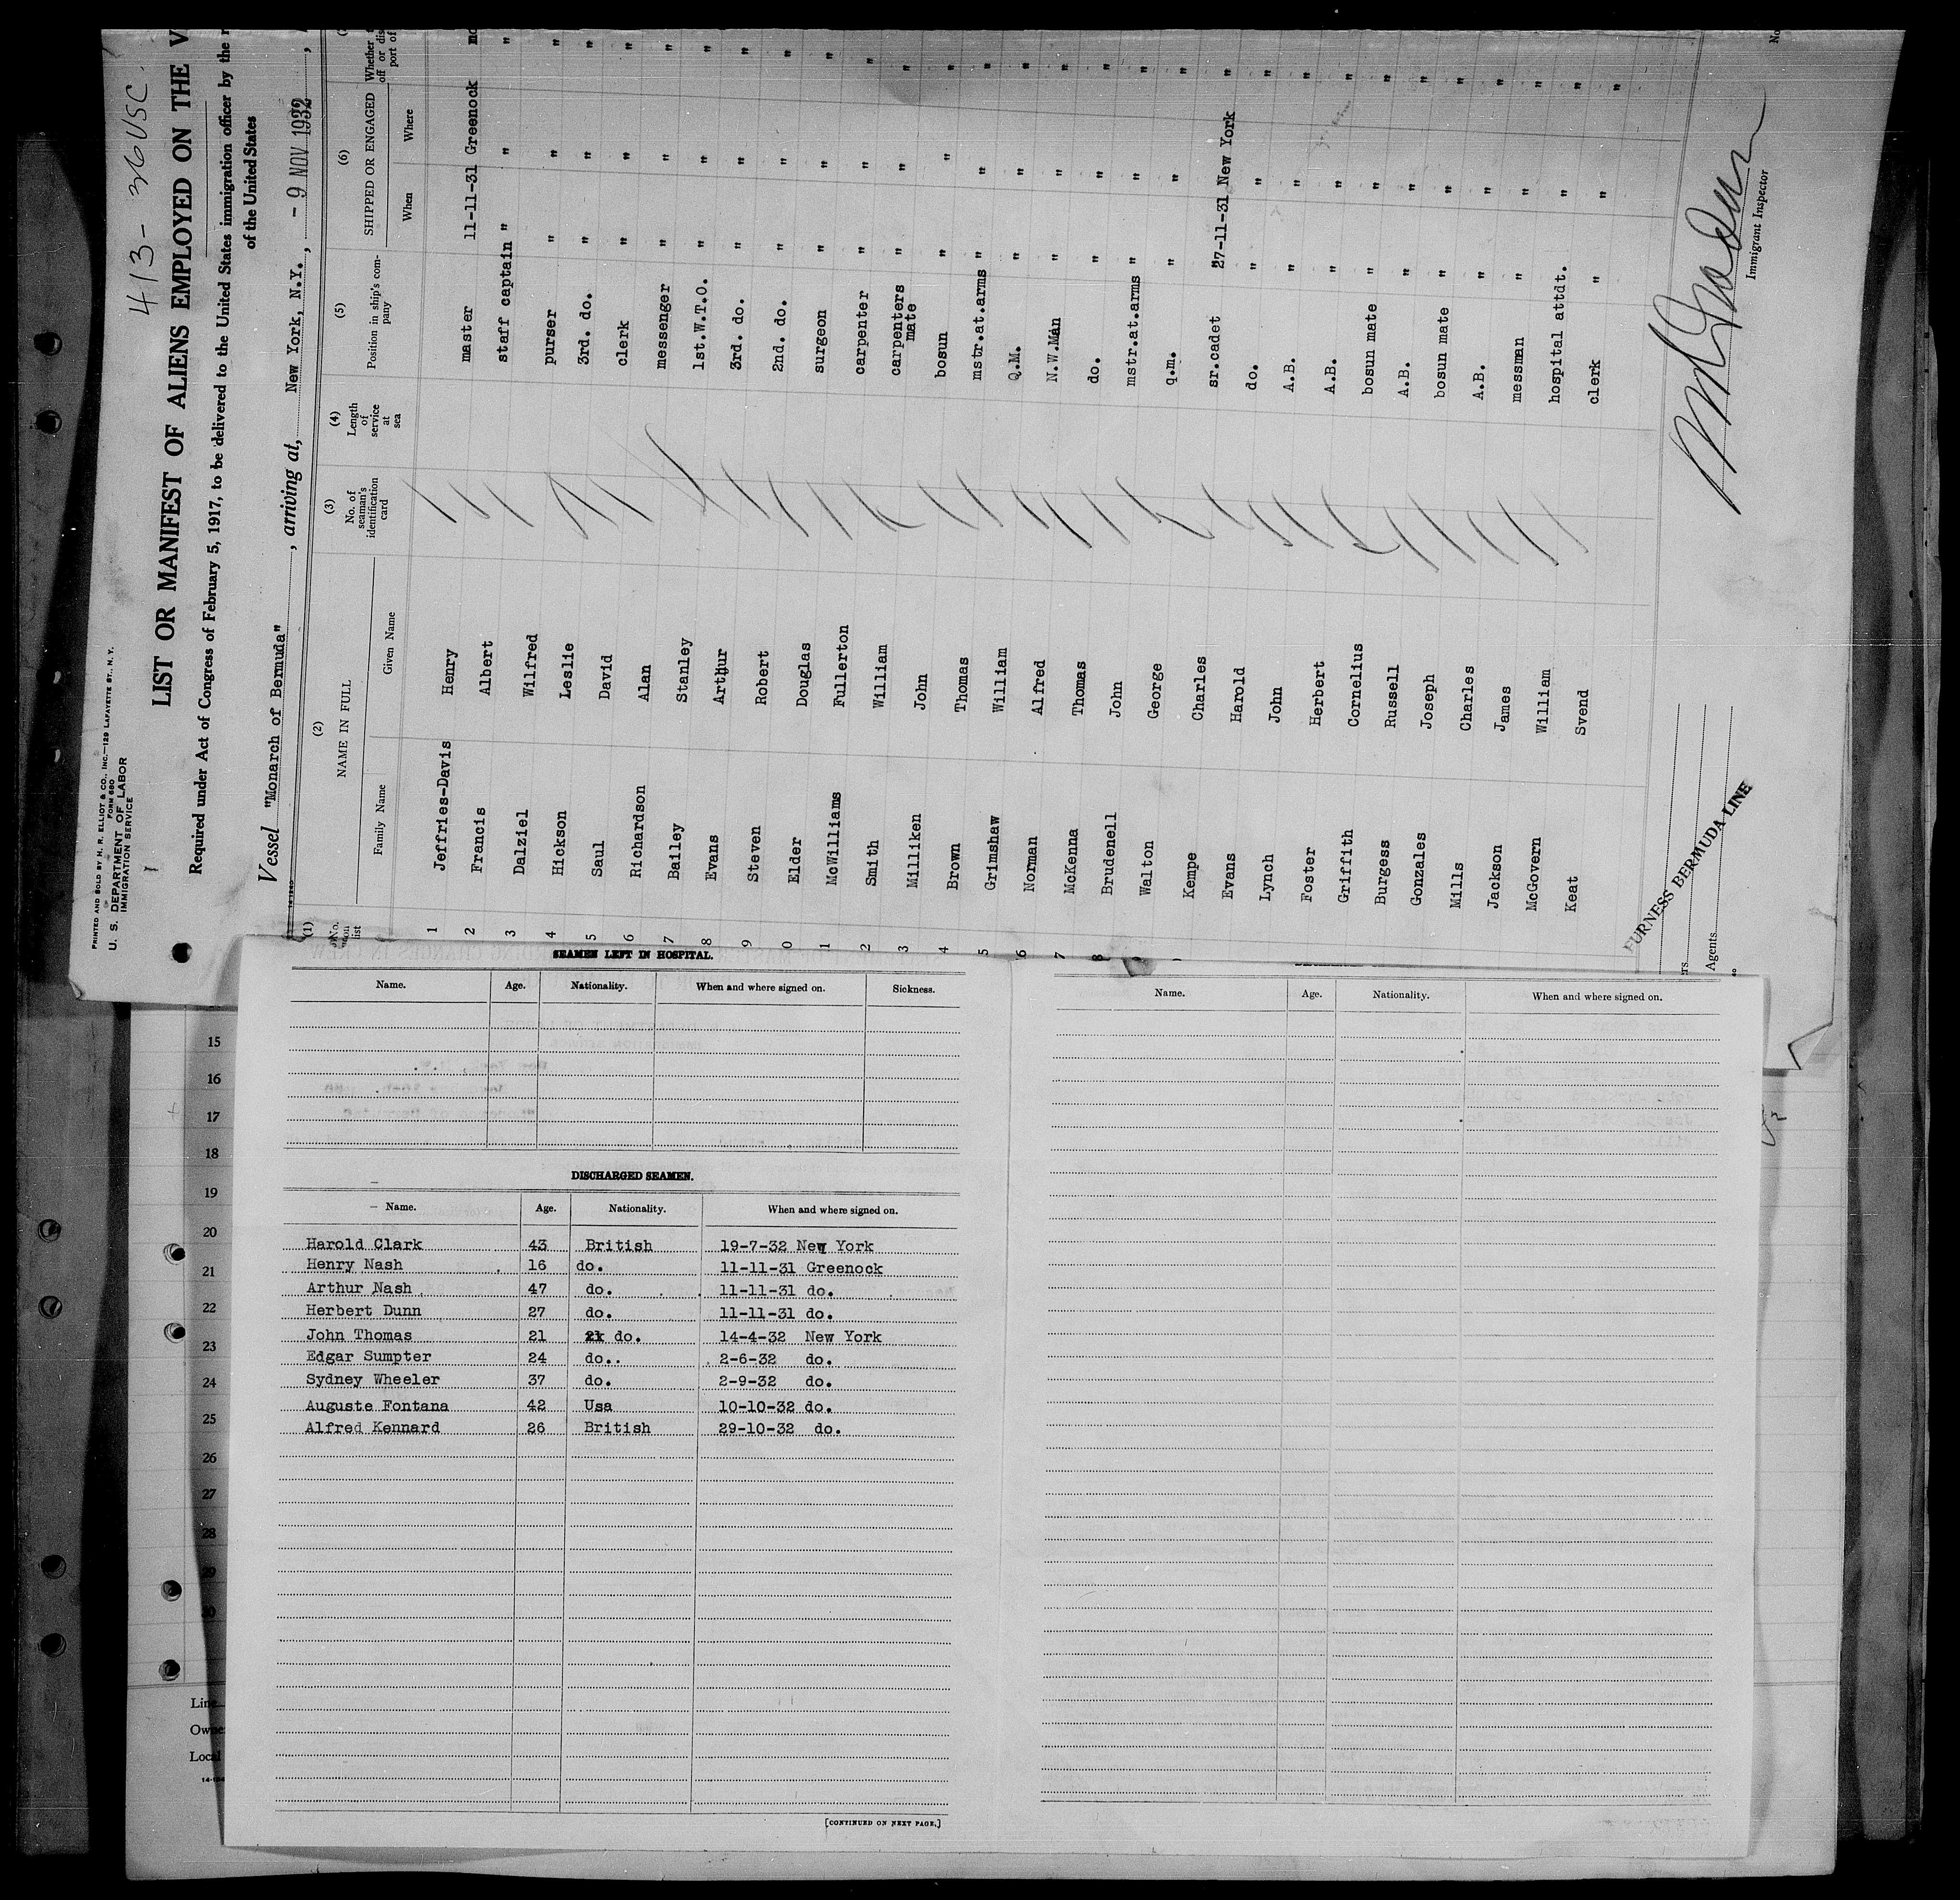 413-36USC.
PRINTED AND SOLD BY H. R. ELLIOT & CO., INC.—129 LAFAYETTE ST., N.Y.
FORM 680
U. S. DEPARTMENT OF LABOR
IMMIGRATION SERVICE
LIST OR MANIFEST OF ALIENS EMPLOYED ON THE V
Required under Act of Congress of February 5, 1917, to be delivered to the United States immigration officer by the r
of the United States
Vessel "Monarch of Bermuda", arriving at, New York, N.Y., - 9 NOV 1932,
(1) (2) (3) (4) (5) (6)
No. on list NAME IN FULL No. of seaman's identification card Length of service at sea Position in ship's company SHIPPED OR ENGAGED Whether off or dis port of
Family Name Given Name When Where
1 Jeffries-Davis Henry master 11-11-31 Greenock
2 Francis Albert staff captain " " "
3 Dalziel Wilfred purser " " "
4 Hickson Leslie 3rd. do. " " "
5 Saul David clerk " " "
6 Richardson Alan messenger " " "
7 Bailey Stanley 1st.W.T.O. " " "
8 Evans Arthur 3rd. do. " " "
9 Steven Robert 2nd. do. " " "
0 Elder Douglas surgeon " " "
1 McWilliams Fullerton carpenter " " "
2 Smith William carpenters mate " " "
3 Milliken John bosun " " "
4 Brown Thomas mstr.at.arms " " "
5 Grimshaw William Q.M. " " "
6 Norman Alfred N.W.Man " " "
7 McKenna Thomas do. " " "
8 Brudenell John mstr.at.arms " " "
Walton George q.m. " " "
Kempe Charles sr.cadet 27-11-31 New York "
Evans Harold do. " " "
Lynch John A.B. " " "
Foster Herbert A.B. " " "
Griffith Cornelius bosun mate " " "
Burgess Russell A.B. " " "
Gonzales Joseph bosun mate " " "
Mills Charles A.B. " " "
Jackson James messman " " "
McGovern William hospital attdt. " " "
Keat Svend clerk " " "
FURNESS BERMUDA LINE
Agents
Immigrant Inspector
No
SEAMEN LEFT IN HOSPITAL.
Name. Age. Nationality. When and where signed on. Sickness.
DISCHARGED SEAMEN.
Name. Age. Nationality. When and where signed on.
Harold Clark 43 British 19-7-32 New York
Henry Nash 16 do. 11-11-31 Greenock
Arthur Nash 47 do. 11-11-31 do.
Herbert Dunn 27 do. 11-11-31 do.
John Thomas 21 do. 14-4-32 New York
Edgar Sumpter 24 do.. 2-6-32 do.
Sydney Wheeler 37 do. 2-9-32 do.
Auguste Fontana 42 Usa 10-10-32 do.
Alfred Kennard 26 British 29-10-32 do.
[CONTINUED ON NEXT PAGE.]
Name. Age. Nationality. When and where signed on.
15
16
17
18
19
20
21
22
23
24
25
26
27
28
29
30
Line
Owne
Local